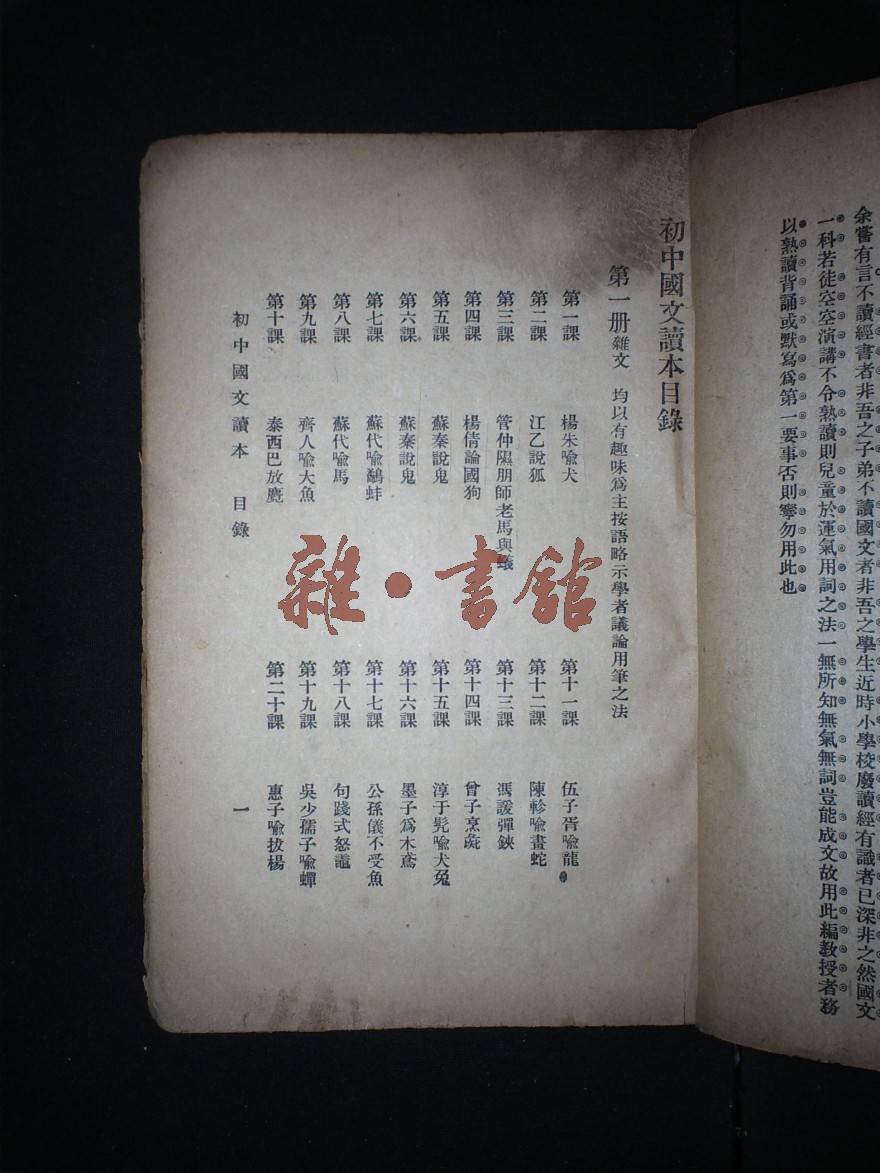 余嘗有言不讀經書者非吾之子弟不讀國文者非吾之學生近時小學校廢讀經有識者已深非之然國文
一科若徒空空演講不令熟讀則兒童於運氣用詞之法一無所知無氣無詞豈能成文故用此編教授者務
以熟讀背誦或默寫爲第一要事否則寧勿用此也
初中國文讀本目錄
第一册雜文 均以有趣味爲主按語略示學者議論用筆之法
第一課 楊朱喩犬
第二課 江乙說狐
第三課 管仲隰朋師老馬與蟻
第四課 楊倩論國狗
第五課 蘇秦說鬼
第六課 蘇秦說鬼
第七課 蘇代喩鷸蚌
第八課 蘇代喩馬
第九課 齊人喩大魚
第十課 秦西巴放麑
第十一課 伍子胥喩龍
第十二課 陳軫喩畫蛇
第十三課 馮諼彈鋏
第十四課 曾子烹彘
第十五課 淳于髡喩犬兔
第十六課 墨子爲木鳶
第十七課 公孫儀不受魚
第十八課 句踐式怒鼃
第十九課 吳少孺子喩蟬
第二十課 惠子喩拔楊
初中國文讀本 目錄 一
雜·書館